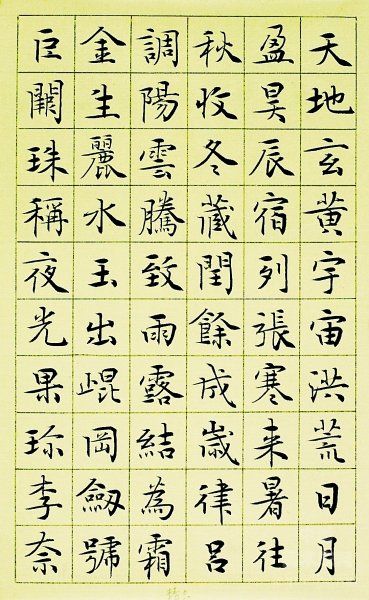 天地玄黃宇宙洪荒日月
盈昃辰宿列張寒来暑往
秋收冬藏閏餘成歲律呂
調陽雲騰致雨露結為霜
金生麗水玉出崐岡劒號
巨闕珠稱夜光果珎李奈